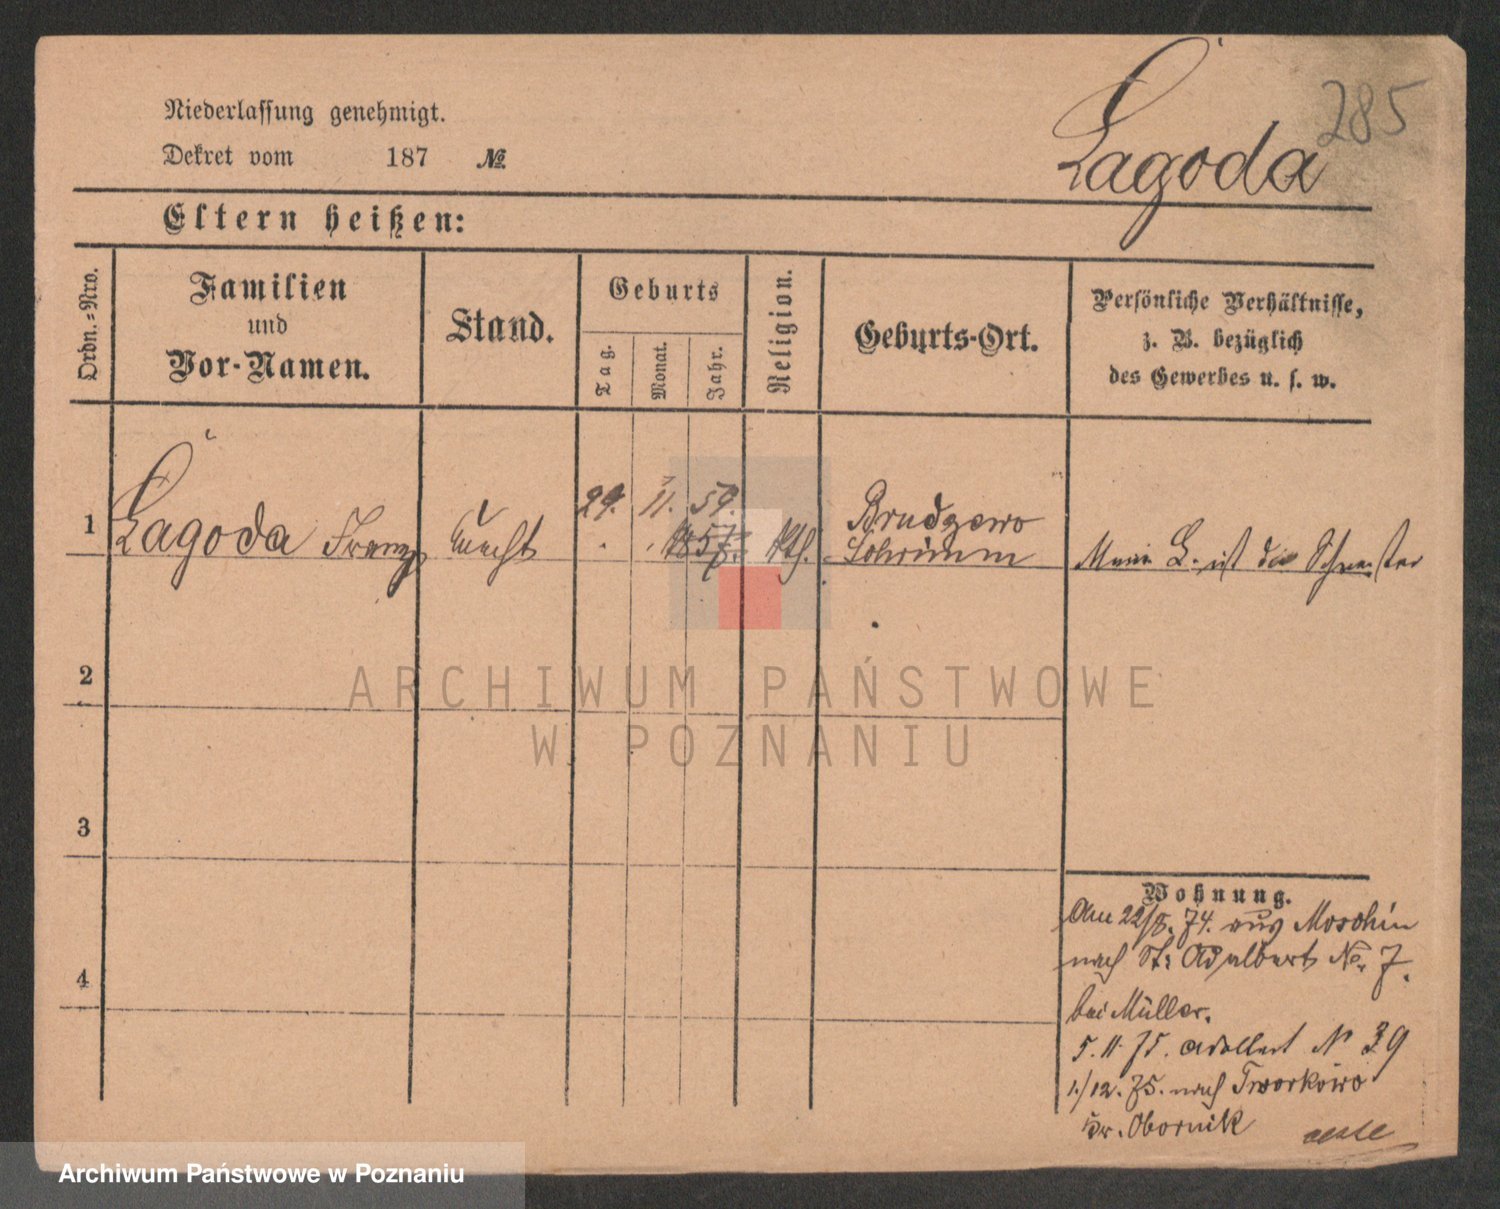 285
Lagoda
Niederlassung genehmigt.
Dekret vom 187 №
Eltern heißen:
Ordn.-Nro.
Familien
und
Vor-Namen.
Stand.
Geburts
Tag.
Monat.
Jahr.
Religion.
Geburts-Ort.
Persönliche Verhältnisse,
z. B. bezüglich
des Gewerbes u. s. w.
29. 11. 59.
1 Lagoda Franz Knecht 1857. kth.
Brudzewo
Schrimm
Marie L. ist die Schwester
2
3
4
ARCHIWUM PAŃSTWOWE
W POZNANIU
Wohnung.
Am 22/8. 74. aus Moschin
nach St: Adalbert No. 7.
bei Müller.
5. 11. 75. Adalbert N 39
1./12. 75. nach Tworkowo
Kr. Obornik
Archiwum Państwowe w Poznaniu